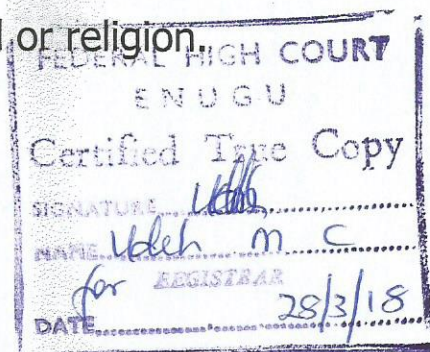 or religion.
FEDERAL HIGH COURT
ENUGU
Certified True Copy
SIGNATURE
NAME Udeh M C
for REGISTRAR
DATE 28/3/18